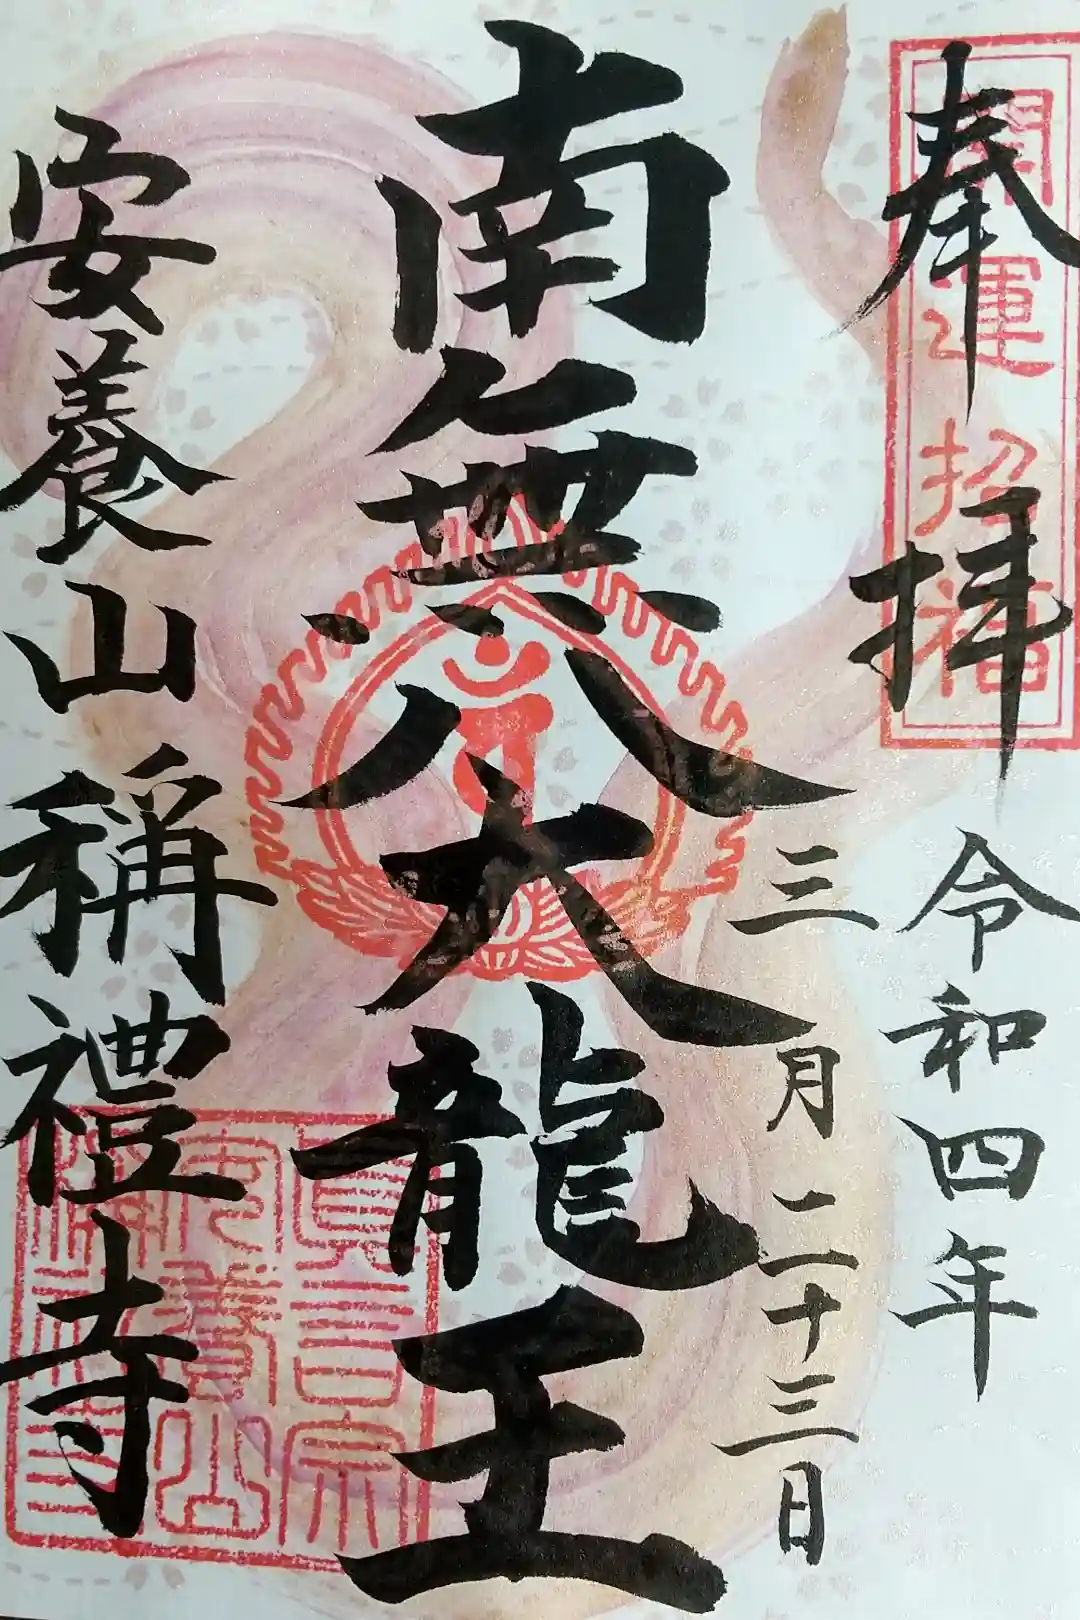 奉拝
開運招福
令和四年
三月二十三日
南無八大龍王
安養山稱禮寺
真言宗
安養山
稱禮寺